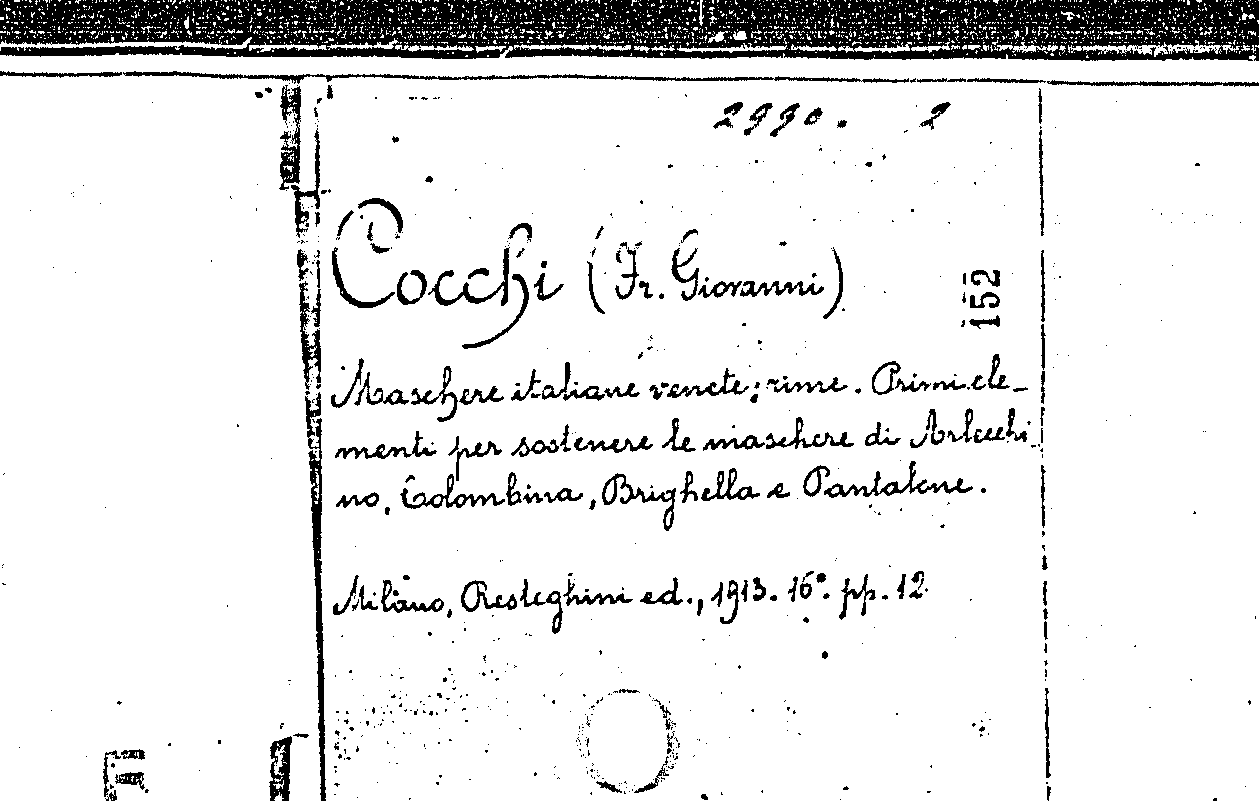 2990. 2
Cocchi (Fr. Giovanni)
152
Maschere italiane venete; rime. Primi ele-
menti per sostenere le maschere di Arlecchi-
no, Colombina, Brighella e Pantalone.
Milano, Resteghini ed., 1913. 16°. pp. 12